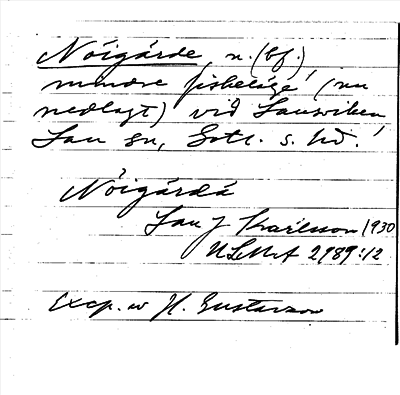 Nóigárde, n. (bf.),
mindre fiskeläge (nu
nedlagt) vid Lauviken,
Lau sn, Gotl. s. hd.
Nóigárdä
Lau J. Karlsson 1930
ULMA 2989:12
Excp. av H. Gustavson